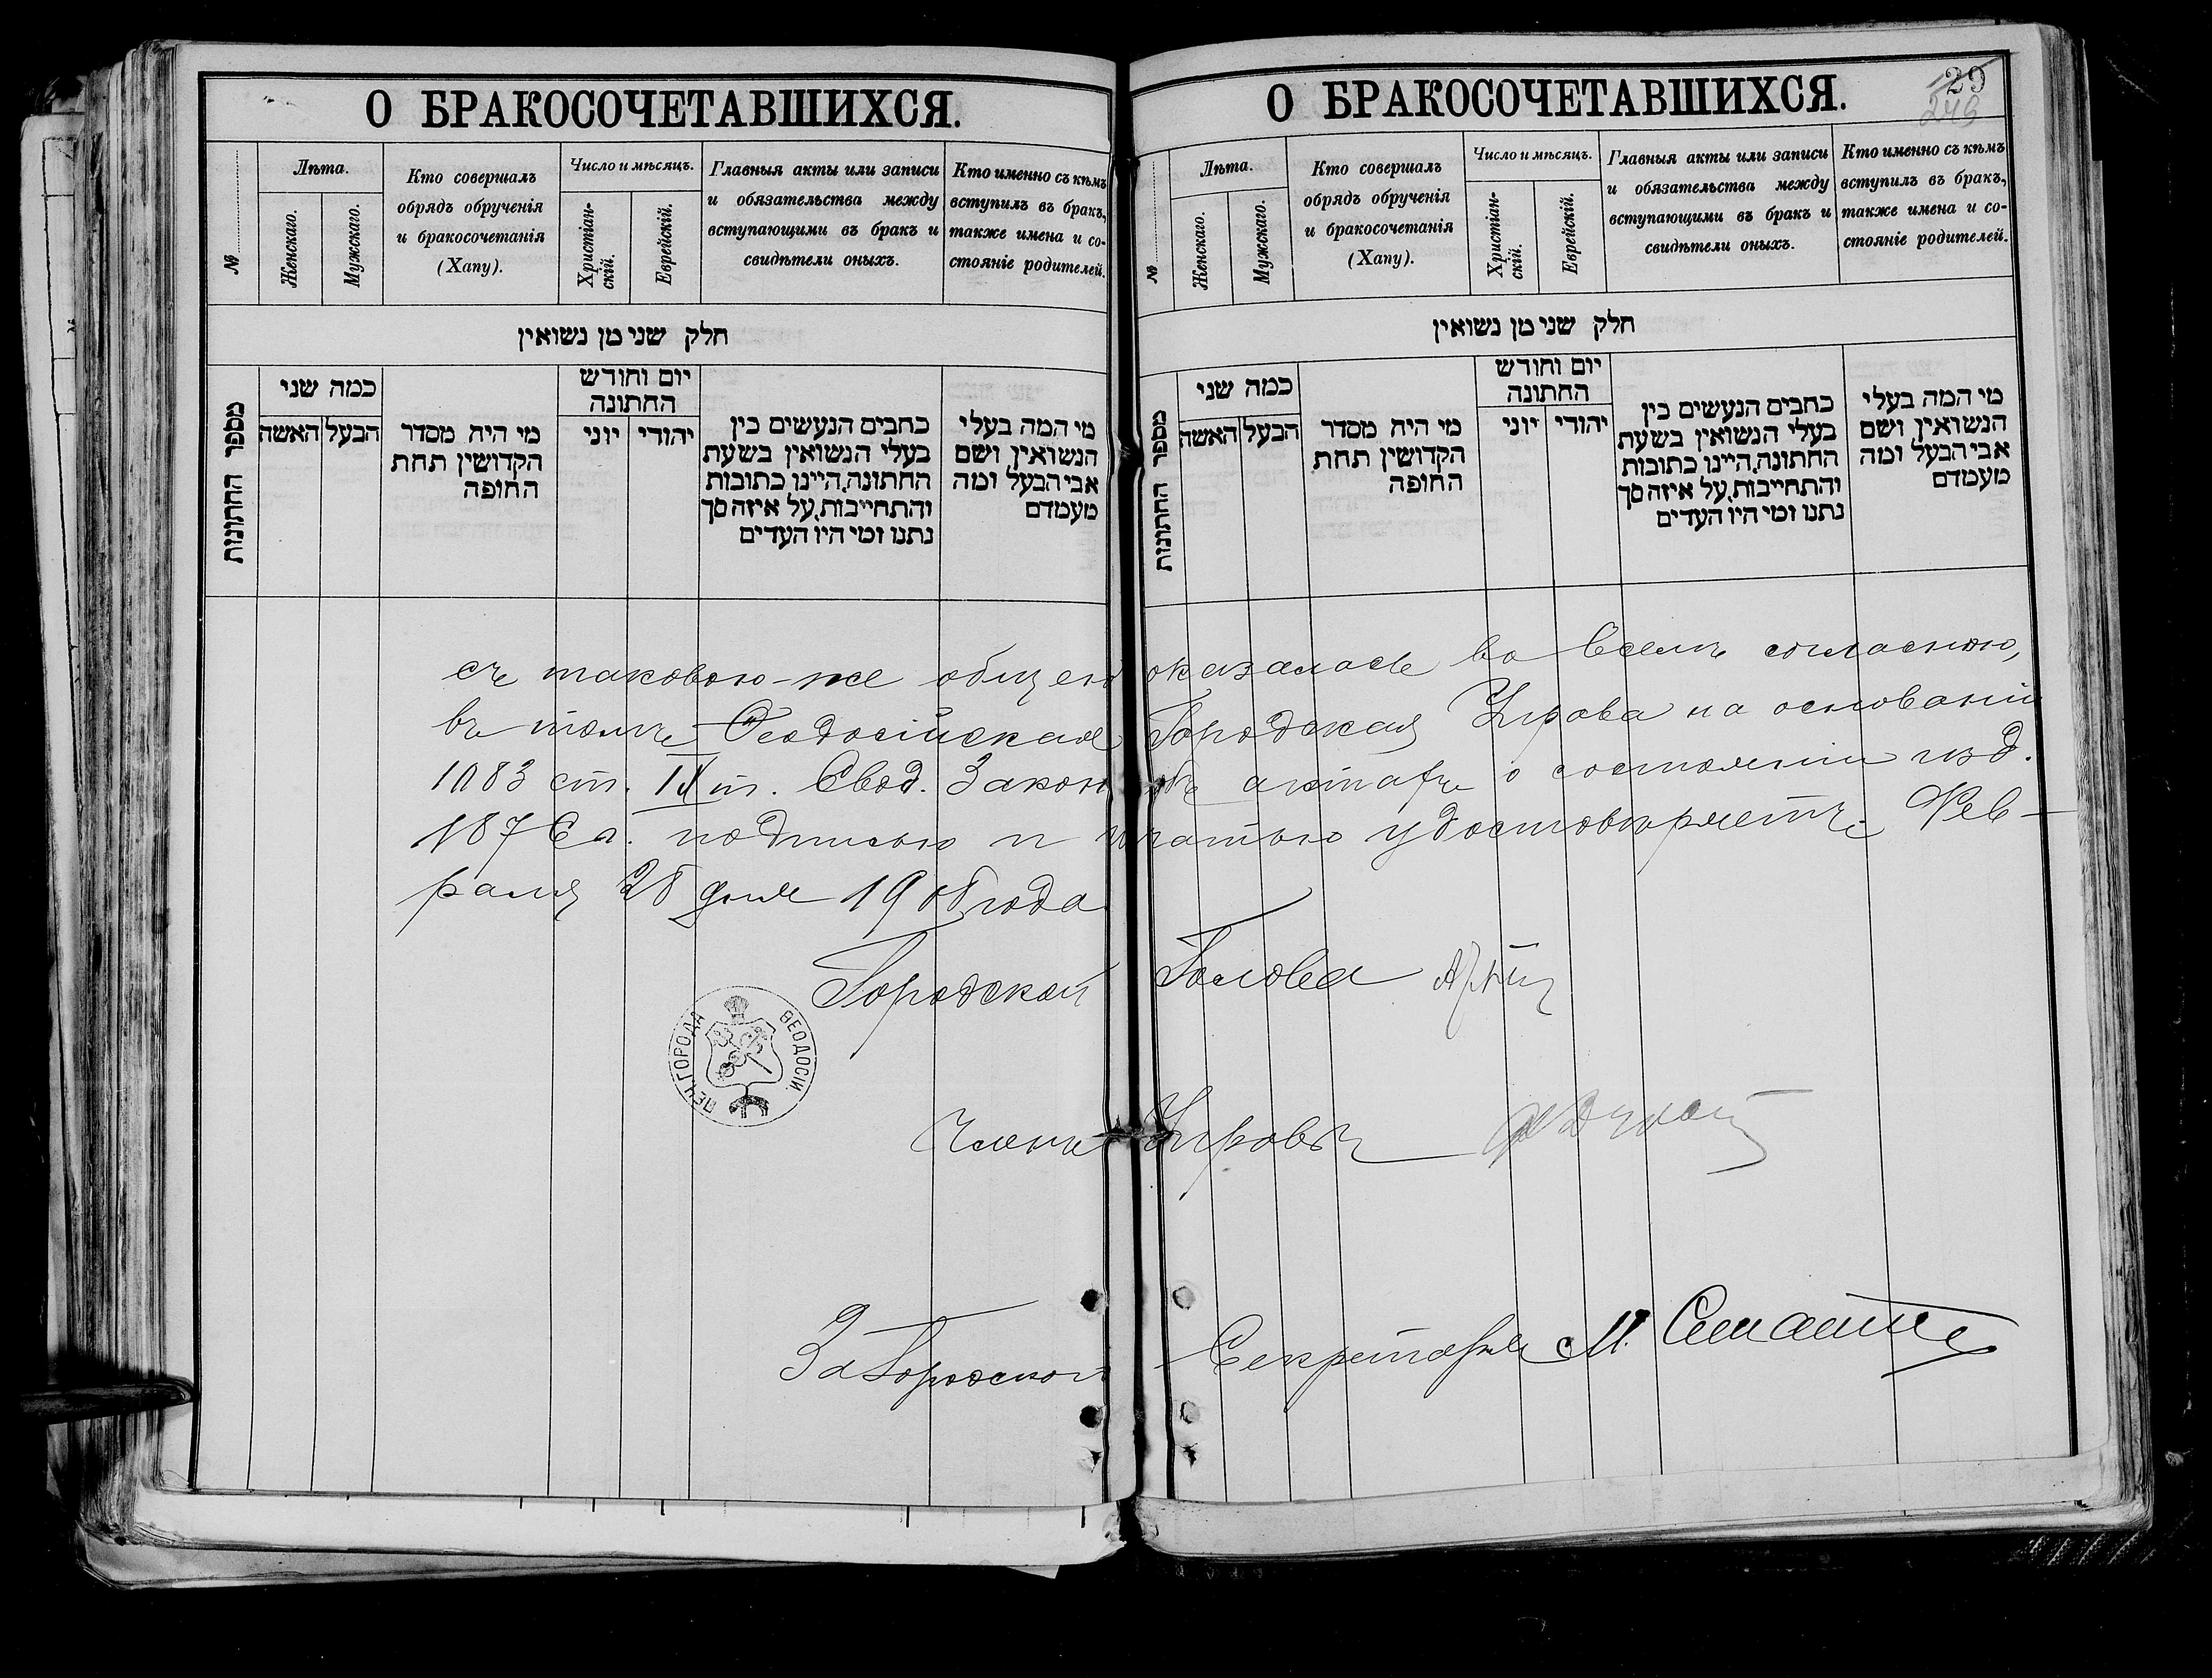 О БРАКОСОЧЕТАВШИХСЯ.
№
Лѣта.
Женскаго.
Мужскаго.
Кто совершалъ
обрядъ обрученія
и бракосочетанія
(Хапу).
Число и мѣсяцъ.
Христіан-
скій.
Еврейскій.
Главныя акты или записи
и обязательства между
вступающими въ бракъ и
свидѣтели оныхъ.
Кто именно съ кѣмъ
вступилъ въ бракъ,
также имена и со-
стояніе родителей.
חלק שני מן נשואין
מספר החתונות
כמה שני
הבעל
האשה
מי היה מסדר
הקדושין תחת
החופה
יום וחודש
החתונה
יהודי
יוני
כתבים הנעשים בין
בעלי הנשואין בשעת
החתונה, היינו כתובות
והתחייבות, על איזה סך
נתנו ומי היו העדים
מי המה בעלי
הנשואין ושם
אבי הבעל ומה
מעמדם
О БРАКОСОЧЕТАВШИХСЯ.
29
246
№
Лѣта.
Женскаго.
Мужскаго.
Кто совершалъ
обрядъ обрученія
и бракосочетанія
(Хапу).
Число и мѣсяцъ.
Христіан-
скій.
Еврейскій.
Главныя акты или записи
и обязательства между
вступающими въ бракъ и
свидѣтели оныхъ.
Кто именно съ кѣмъ
вступилъ въ бракъ,
также имена и со-
стояніе родителей.
חלק שני מן נשואין
מספר החתונות
כמה שני
הבעל
האשה
מי היה מסדר
הקדושין תחת
החופה
יום וחודש
החתונה
יהודי
יוני
כתבים הנעשים בין
בעלי הנשואין בשעת
החתונה, היינו כתובות
והתחייבות, על איזה סך
נתנו ומי היו העדים
מי המה בעלי
הנשואין ושם
אבי הבעל ומה
מעמדם
съ таковою-же общею оказалась во всемъ согласною,
въ томъ Ѳеодосійская Городская Управа на основаніи
1083 ст. IX т. Свод. Законовъ актахъ о состояніи изд.
1876 г. подписью и печатью удостовѣряетъ. Фев-
раля 28 дня 1908 года
Городской Голова
ПЕЧ. ГОРОДА ѲЕОДОСІИ.
Членъ Управы
За Городского Секретаря М.